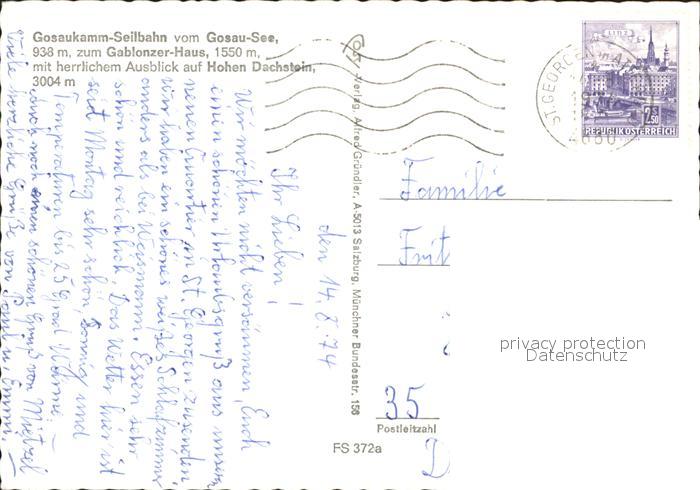 Gosaukamm-Seilbahn vom Gosau-See,
938 m, zum Gablonzer-Haus, 1550 m,
mit herrlichem Ausblick auf Hohen Dachstein,
3004 m
den 14. 8. 74
Ihr Lieben!
Wir möchten nicht versäumen, Euch
einen schönen Urlaubsgruß aus unserm
neuen Quartier in St. Georgen zusenden,
wir haben ein schönes weißes Schlafzimmer
anders als bei Weismann, Essen sehr
schön und reichlich. Das Wetter hier ist
seit Montag sehr schön, sonnig und
Temperaturen bis 25 Grad Wärme. –
auch noch einen schönen Gruß von
Viele herzliche Grüße von Paul u.
Verlag Alfred Gründler, A-5013 Salzburg, Münchner Bundesstr. 156
LINZ
2.50
REPUBLIK ÖSTERREICH
ST. GEORGEN
4880
Familie
Frit
35
Postleitzahl
D
FS 372a
privacy protection
Datenschutz